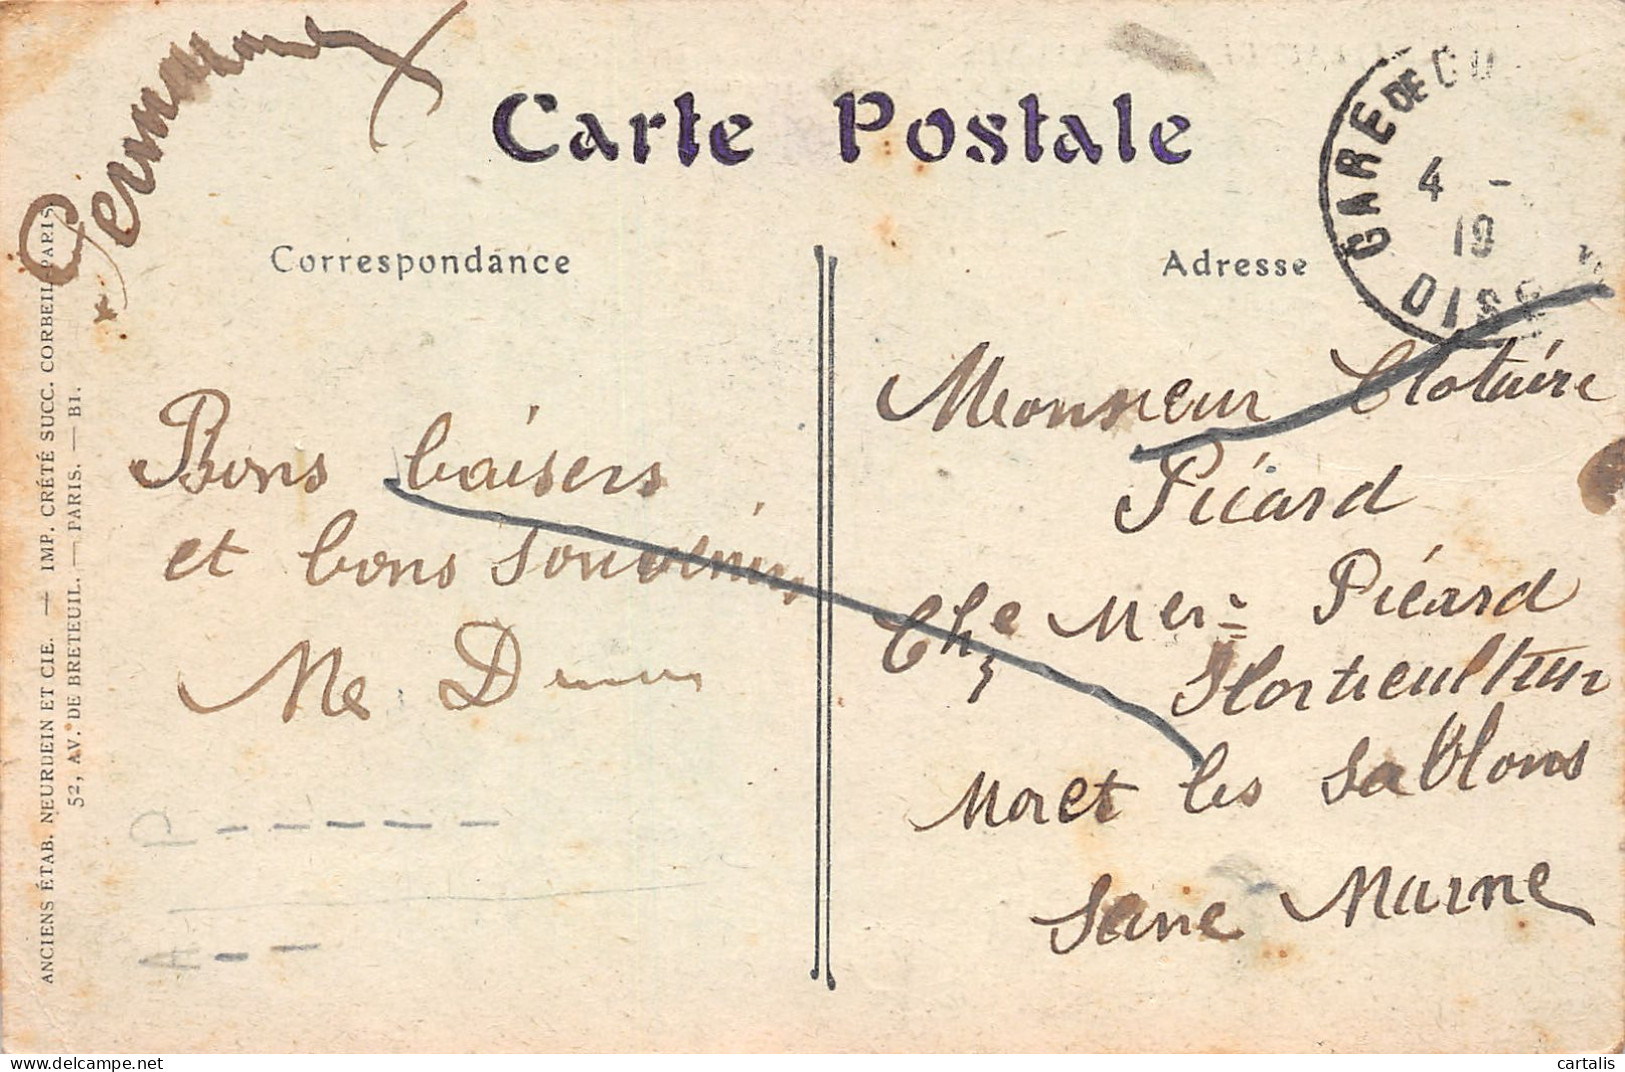 Carte Postale
GARE DE
4 -
19
OISE
Correspondance
Adresse
Bons baisers
et bons souvenirs
Me D
Monsieur Clotaire
Picard
Che Mer Picard
Horticulteur
Moret les Sablons
Seine Marne
P - - - - - -
A - -
ANCIENS ÉTAB. NEURDEIN ET CIE. — IMP. CRÉTÉ SUCC. CORBEIL-PARIS
52, AV. DE BRETEUIL. — PARIS. — B1.
cartalis